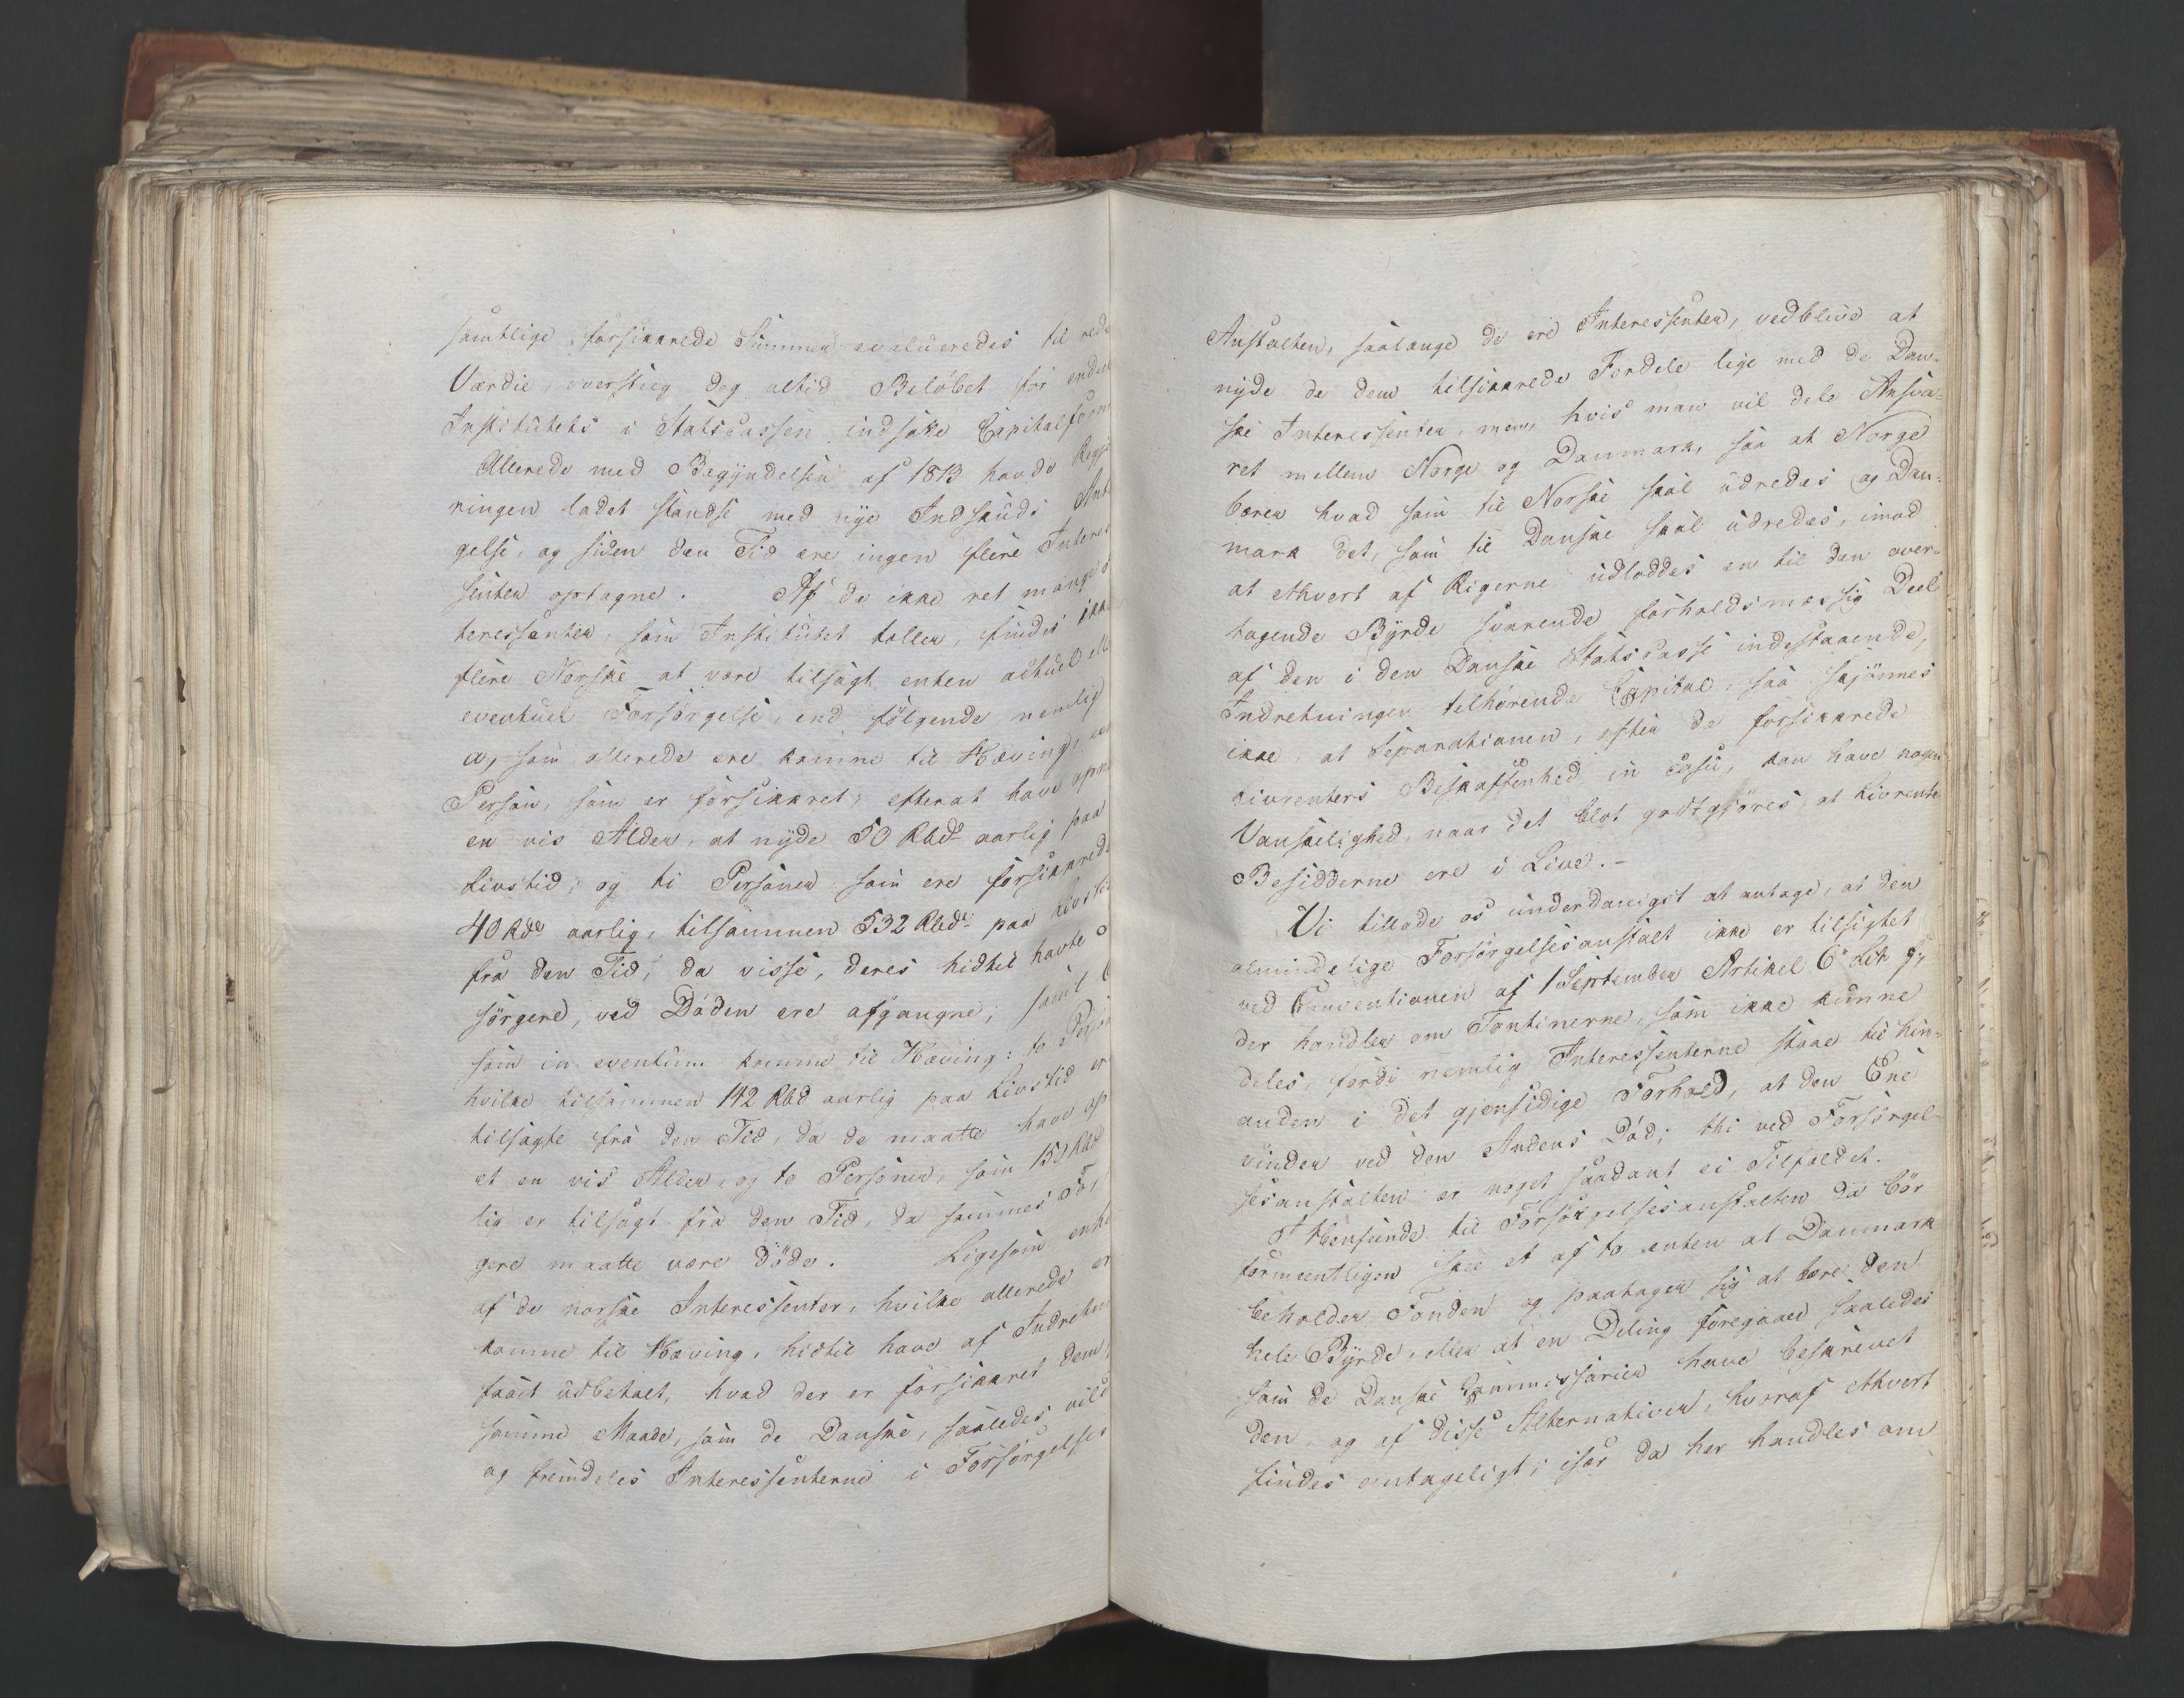 samtlige forsikkrede Summer evalueredes til rede
Værdie, oversteg dog altid Beløbet for enden
Institutets i Statscassen indsatte Capitalform
Allerede med Begyndelsen af 1813 havde Regje
ringen ladet standse med nye Indskuds Ant
gelse, og siden den Tid ere ingen flere Interes
senter optagne. Af de ikke ret mange
teressenter, som Institutet tæller, findes ikk
flere Norske at være tilsagt enten actuel ell
eventuel Forsørgelse, end følgende nemlig
a, som allerede ere komne til Hæving, een
Person, som er forsikkret, efterat have opn
en vis Alder, at nyde 50 Rbd aarlig paa
Livstid; og ti Personer som ere forsikkrede
40 Rdr aarlig, tilsammen 532 Rbdr paa Livstid
fra den Tid, da visse, deres hidtil havte
sørgere, ved Døden ere afgangne; samt
som in eventum komme til Hæving: to Person
hvilke tilsammen 142 Rbd aarlig paa Livstid er
tilsagte fra den Tid, da de maatte have op
et en vis Alder, og to Personer, som 150 Rbd
lig er tilsagt fra den Tid, da sammes For
gere maatte være døde. Ligesom enhv
af de norske Interessenter, hvilke allerede er
komne til Hæving, hidtil have af Indretn
faaet udbetalt, hvad der er forsikkret dem,
samme Maade, som de Danske, saaledes vild
og fremdeles Interessenterne i Forsørgelses
Anstalten, saalænge de ere Interessenter, vedblive at
nyde de dem tilsikkrede Fordele lige med de Dan-
ske Interessenter, men, hvis man vil dele Ansva-
ret mellem Norge og Danmark, saa at Norge
bærer hvad som til Norske skal udredes og Dan-
mark det, som til Danske skal udredes, imod
at ethvert af Rigerne udloddes en til den over-
tagende Byrde svarende forholdsmæssig Deel
af den i den Danske Statscasse indestaaende,
Indretningen tilhørende Capital, saa skjønnes
ikke, at Separationen, efter de forsikkrede
Livrenters Beskaffenhed in casu, kan have nogen
Vanskelighed, naar det blot godtgjøres, at Livrente
Besidderne ere i Live.-
Vi tillade os underdanigst at antage, at den
almindelige Forsørgelsesanstalt ikke er tilsigtet
ved Conventionen af 1 September Artikel 6 Litr g,
der handler om Tontinerne, som ikke kunne
deles, fordi nemlig Interessenterne staae til hin-
anden i det gjensidige Forhold, at den Ene
vinder ved den Andens Død; thi ved Forsørgel-
sesanstalten er noget saadant ei Tilfældet.
I Henseende til Forsørgelsesanstalten da bør
formeentligen skee et af to enten at Danmark
beholder Fonden og paatager sig at bære den
hele Byrde, eller at en Deling foregaaer saaledes
som de Danske Commissarier have beskrevet
den, og af disse Alternativer, hvoraf ethvert
findes antageligt, især da her handles om